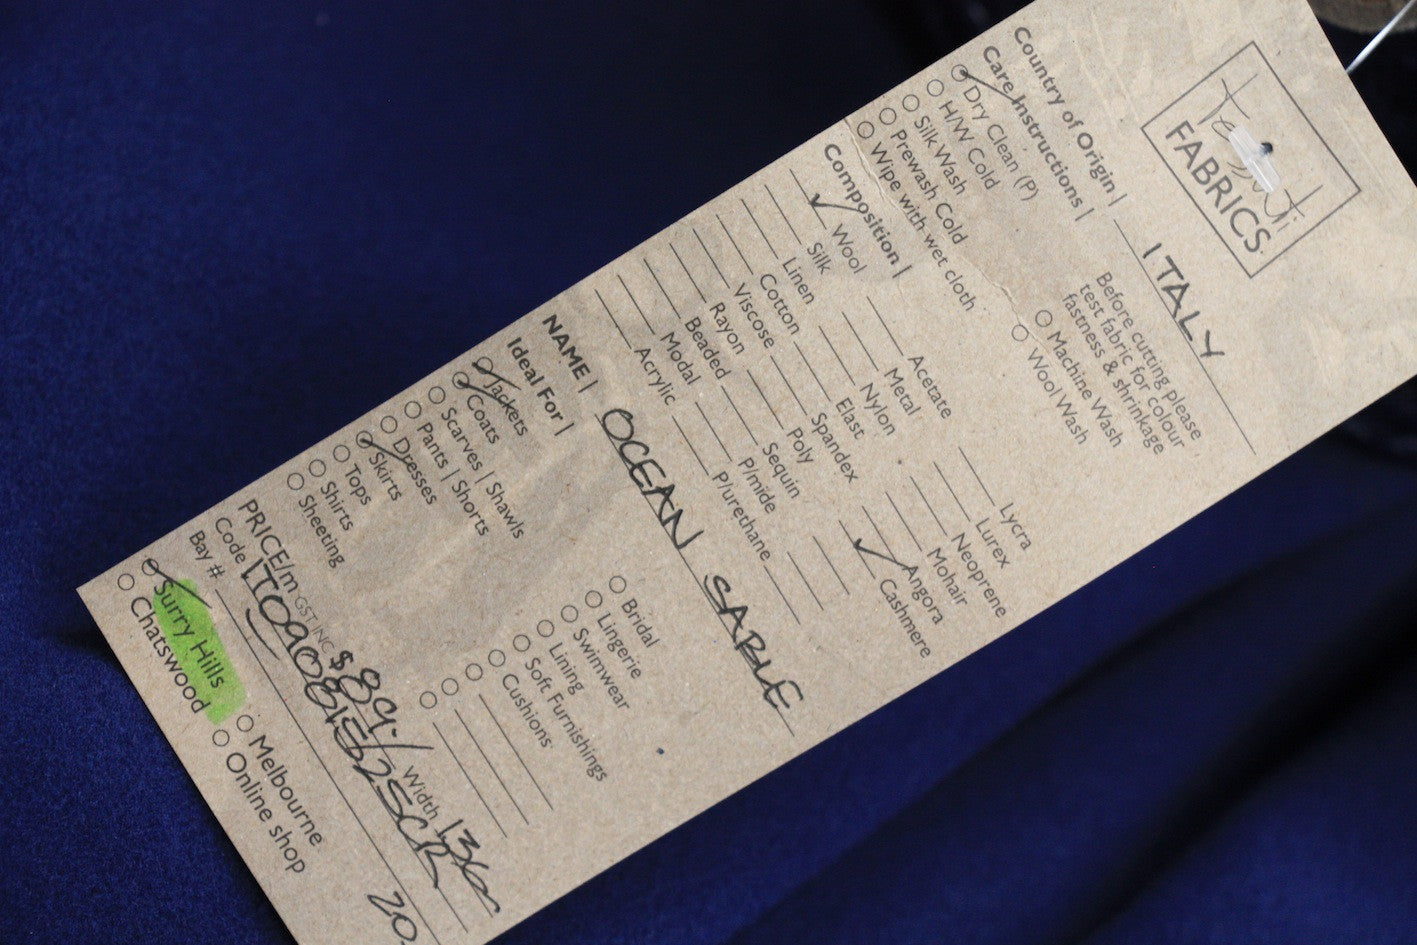 FABRICS
Country of Origin | ITALY
Care Instructions |
Dry Clean (P)
H/W Cold
Silk Wash
Prewash Cold
Wipe with wet cloth
Before cutting please
test fabric for colour
fastness & shrinkage
Machine Wash
Wool Wash
Composition |
Wool
Silk
Linen
Cotton
Viscose
Rayon
Beaded
Modal
Acrylic
Acetate
Metal
Nylon
Elast
Spandex
Poly
Sequin
P/mide
P/urethane
Lycra
Lurex
Neoprene
Mohair
Angora
Cashmere
NAME | OCEAN SABLE
Ideal For |
Jackets
Coats
Scarves | Shawls
Pants | Shorts
Dresses
Skirts
Tops
Shirts
Sheeting
Bridal
Lingerie
Swimwear
Lining
Soft Furnishings
Cushions
PRICE/m GST INC $89. Width 136
Code
Bay # 20.
Surry Hills
Chatswood
Melbourne
Online shop